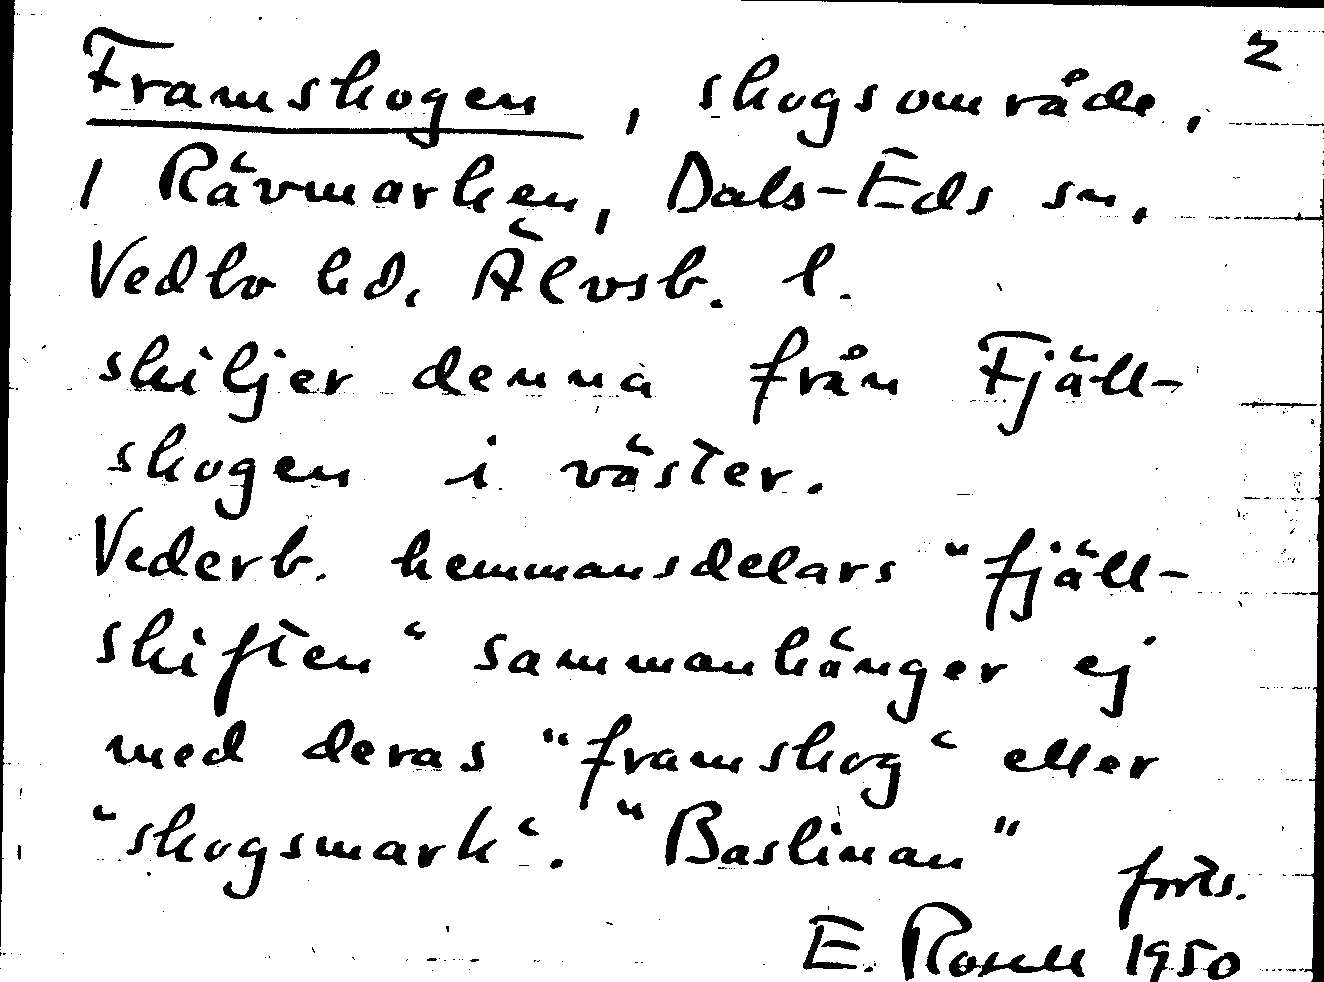 2
Framskogen, skogsområde,
I Rävmarken, Dals-Eds sn.
Vedbo hd. Älvsb. l.
skiljer denna från Fjäll-
skogen i väster.
Vederb. hemmansdelars "fjäll-
skiften" sammanhänger ej
med deras "framskog" eller
"skogsmark". "Baslinan"
forts.
E. Rosell 1950